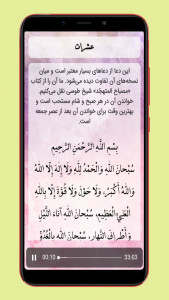 عشرات
این دعا از دعاهای بسیار معتبر است و میان
نسخه‌های آن تفاوت دیده می‌شود. ما آن را از کتاب
«مصباح المتهجّد» شیخ طوسی نقل می‌کنیم.
خواندن آن در هر صبح و شام مستحب است و
بهترین وقت برای خواندن آن بعد از عصر جمعه
است.
بِسْمِ اللَّهِ الرَّحْمَنِ الرَّحِيمِ
سُبْحَانَ اللَّهِ وَ الْحَمْدُ لِلَّهِ وَ لَا إِلَهَ إِلَّا اللَّهُ
وَ اللَّهُ أَكْبَرُ، وَ لَا حَوْلَ وَ لَا قُوَّةَ إِلَّا بِاللَّهِ
الْعَلِيِّ الْعَظِيمِ، سُبْحَانَ اللَّهِ آنَاءَ اللَّيْلِ
وَ أَطْرَافَ النَّهَارِ، سُبْحَانَ اللَّهِ بِالْغُدُوِّ
00:10 33:03